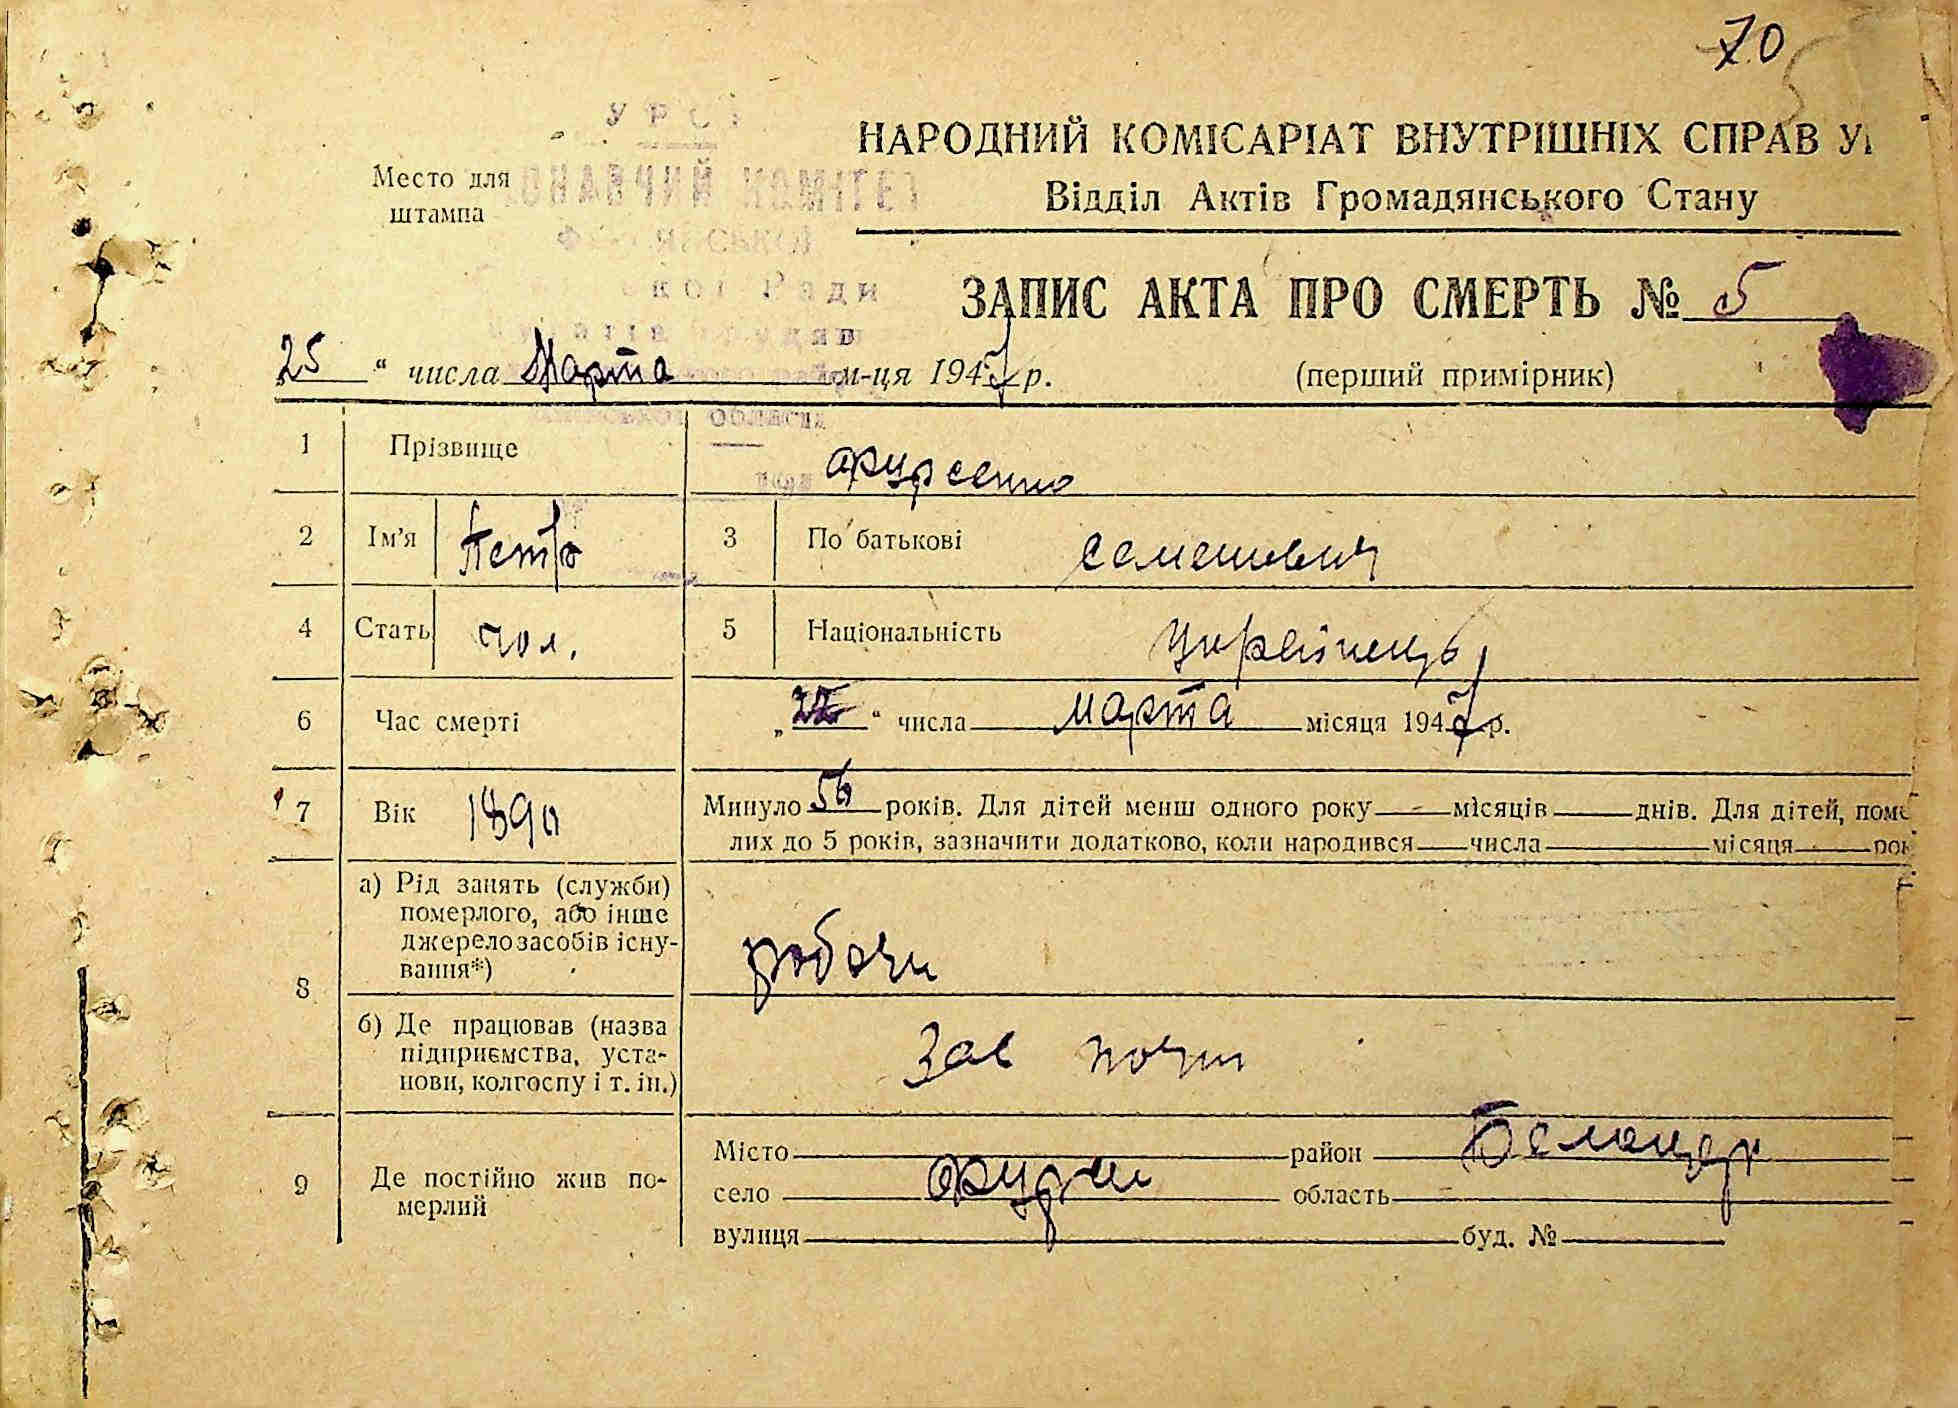 70
УРСР
Место для
штампа
КОМІТЕТ
Ради
НАРОДНИЙ КОМІСАРІАТ ВНУТРІШНІХ СПРАВ У
Відділ Актів Громадянського Стану
ЗАПИС АКТА ПРО СМЕРТЬ № 5
25 “ числа Марта м-ця 1945 р. (перший примірник)
області
1 Прізвище Фурсенко
2 Ім'я Петро 3 По батькові Семенович
4 Стать чол. 5 Національність Українець
6 Час смерті „ 22 “ числа Марта місяця 1945 р.
7 Вік 1890 Минуло 56 років. Для дітей менш одного року місяців днів. Для дітей, поме
лих до 5 років, зазначити додатково, коли народився числа місяця рок
8 а) Рід занять (служби)
померлого, або інше
джерело засобів існу-
вання*) робочи
б) Де працював (назва
підприємства, уста-
нови, колгоспу і т. ін.) Зав почти
9 Де постійно жив по-
мерлий
Місто район
село область
вулиця буд. №